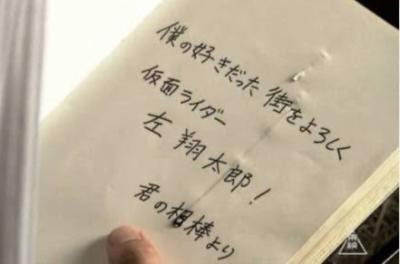 僕の好きだった街をよろしく
仮面ライダー
左 翔太郎！
君の相棒より